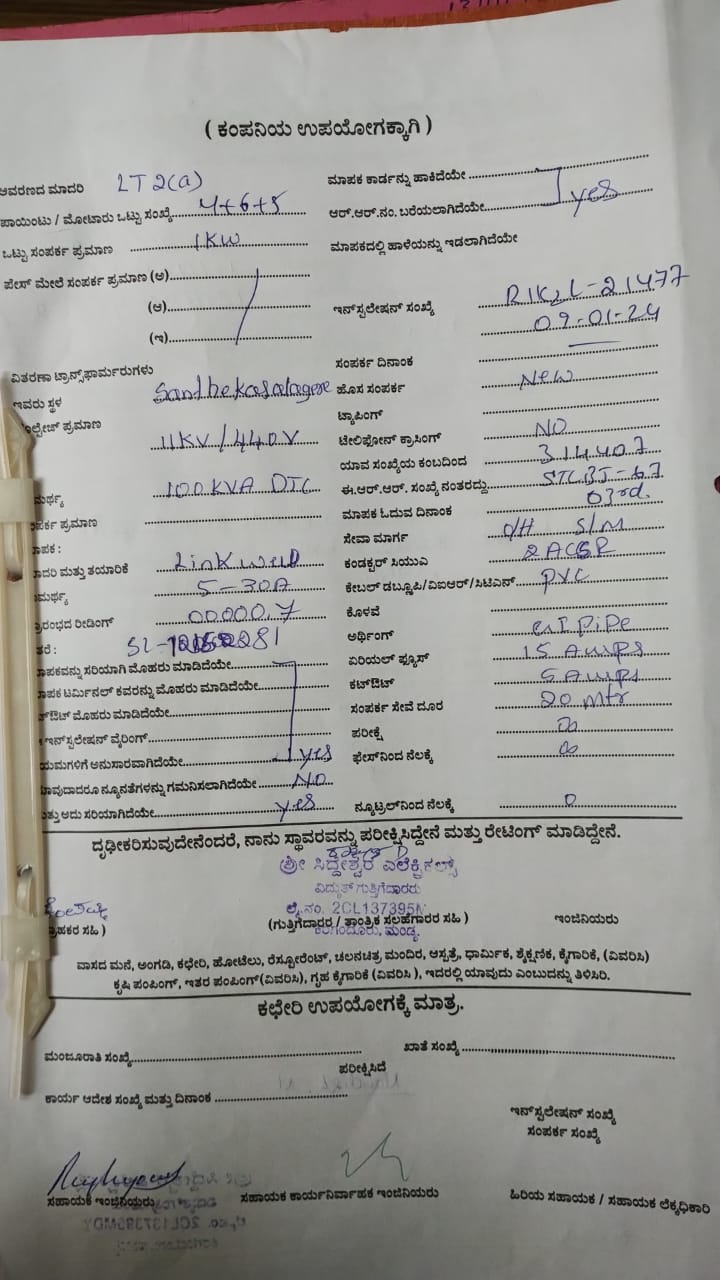 ( ಕಂಪನಿಯ ಉಪಯೋಗಕ್ಕಾಗಿ )
ಆವರಣದ ಮಾದರಿ LT 2(a)
ಪಾಯಿಂಟು / ಮೋಟಾರು ಒಟ್ಟು ಸಂಖ್ಯೆ 4+6+5
ಒಟ್ಟು ಸಂಪರ್ಕ ಪ್ರಮಾಣ 1KW
ಫೇಸ್ ಮೇಲೆ ಸಂಪರ್ಕ ಪ್ರಮಾಣ (ಅ)
(ಆ)
(ಇ)
ವಿತರಣಾ ಟ್ರಾನ್ಸ್‌ಫಾರ್ಮರುಗಳು
ಇವರು ಸ್ಥಳ Santhekasalagere
ಪ್ರಮಾಣ 11KV/440V
100KVA DTC
ಪ್ರಮಾಣ
ಮತ್ತು ತಯಾರಿಕೆ Linkweld
5-30A
ರೀಡಿಂಗ್ 00000.7
SL-
ಸರಿಯಾಗಿ ಮೊಹರು ಮಾಡಿದೆಯೇ
ಟರ್ಮಿನಲ್ ಕವರನ್ನು ಮೊಹರು ಮಾಡಿದೆಯೇ
ಮೊಹರು ಮಾಡಿದೆಯೇ
ಇನ್‌ಸ್ಪಲೇಷನ್ ವೈರಿಂಗ್
ಅನುಸಾರವಾಗಿದೆಯೇ yes
ನ್ಯೂನತೆಗಳನ್ನು ಗಮನಿಸಲಾಗಿದೆಯೇ NO
ಅದು ಸರಿಯಾಗಿದೆಯೇ yes
ಮಾಪಕ ಕಾರ್ಡನ್ನು ಹಾಕಿದೆಯೇ
ಆರ್.ಆರ್.ನಂ. ಬರೆಯಲಾಗಿದೆಯೇ yes
ಮಾಪಕದಲ್ಲಿ ಹಾಳೆಯನ್ನು ಇಡಲಾಗಿದೆಯೇ
ಇನ್‌ಸ್ಪಲೇಷನ್ ಸಂಖ್ಯೆ 21477
09-01-24
ಸಂಪರ್ಕ ದಿನಾಂಕ
ಹೊಸ ಸಂಪರ್ಕ New
ಟ್ಯಾಪಿಂಗ್
ಟೆಲಿಫೋನ್ ಕ್ರಾಸಿಂಗ್ NO
ಯಾವ ಸಂಖ್ಯೆಯ ಕಂಬದಿಂದ 314407
ಈ.ಆರ್.ಆರ್. ಸಂಖ್ಯೆ ನಂತರದ್ದು
ಮಾಪಕ ಓದುವ ದಿನಾಂಕ 03rd.
ಸೇವಾ ಮಾರ್ಗ O/H S/M
ಕಂಡಕ್ಟರ್ ಸಿಯುಎ
ಕೇಬಲ್ ಡಬ್ಲ್ಯೂಪಿ/ವಿಐಆರ್/ಸಿಟಿಎಸ್ PVC
ಕೊಳವೆ
ಅರ್ಥಿಂಗ್ GI Pipe
ಏರಿಯಲ್ ಫ್ಯೂಸ್ 15 Amps
ಕಟ್‌ಔಟ್ 5 Amps
ಸಂಪರ್ಕ ಸೇವೆ ದೂರ 20 mtr
ಪರೀಕ್ಷೆ ∞
ಫೇಸ್‌ನಿಂದ ನೆಲಕ್ಕೆ ∞
ನ್ಯೂಟ್ರಲ್‌ನಿಂದ ನೆಲಕ್ಕೆ 0
ದೃಢೀಕರಿಸುವುದೇನೆಂದರೆ, ನಾನು ಸ್ಥಾವರವನ್ನು ಪರೀಕ್ಷಿಸಿದ್ದೇನೆ ಮತ್ತು ರೇಟಿಂಗ್ ಮಾಡಿದ್ದೇನೆ.
ಶ್ರೀ ಸಿದ್ದೇಶ್ವರ ಎಲೆಕ್ಟ್ರಿಕಲ್ಸ್
ವಿದ್ಯುತ್ ಗುತ್ತಿಗೆದಾರರು
ಲೈ.ನಂ. 2CL137395M
(ಗುತ್ತಿಗೆದಾರರ / ತಾಂತ್ರಿಕ ಸಲಹೆಗಾರರ ಸಹಿ ) ಇಂಜಿನಿಯರು
ವಾಸದ ಮನೆ, ಅಂಗಡಿ, ಕಛೇರಿ, ಹೋಟೆಲು, ರೆಸ್ಟೋರೆಂಟ್, ಚಲನಚಿತ್ರ ಮಂದಿರ, ಆಸ್ಪತ್ರೆ, ಧಾರ್ಮಿಕ, ಶೈಕ್ಷಣಿಕ, ಕೈಗಾರಿಕೆ, (ವಿವರಿಸಿ)
ಕೃಷಿ ಪಂಪಿಂಗ್, ಇತರ ಪಂಪಿಂಗ್(ವಿವರಿಸಿ), ಗೃಹ ಕೈಗಾರಿಕೆ (ವಿವರಿಸಿ ), ಇದರಲ್ಲಿ ಯಾವುದು ಎಂಬುದನ್ನು ತಿಳಿಸಿರಿ.
ಕಛೇರಿ ಉಪಯೋಗಕ್ಕೆ ಮಾತ್ರ.
ಮಂಜೂರಾತಿ ಸಂಖ್ಯೆ ಖಾತೆ ಸಂಖ್ಯೆ
ಪರೀಕ್ಷಿಸಿದೆ
ಕಾರ್ಯ ಆದೇಶ ಸಂಖ್ಯೆ ಮತ್ತು ದಿನಾಂಕ
ಇನ್‌ಸ್ಪಲೇಷನ್ ಸಂಖ್ಯೆ
ಸಂಪರ್ಕ ಸಂಖ್ಯೆ
ಸಹಾಯಕ ಇಂಜಿನಿಯರು ಸಹಾಯಕ ಕಾರ್ಯನಿರ್ವಾಹಕ ಇಂಜಿನಿಯರು ಹಿರಿಯ ಸಹಾಯಕ / ಸಹಾಯಕ ಲೆಕ್ಕಧಿಕಾರಿ